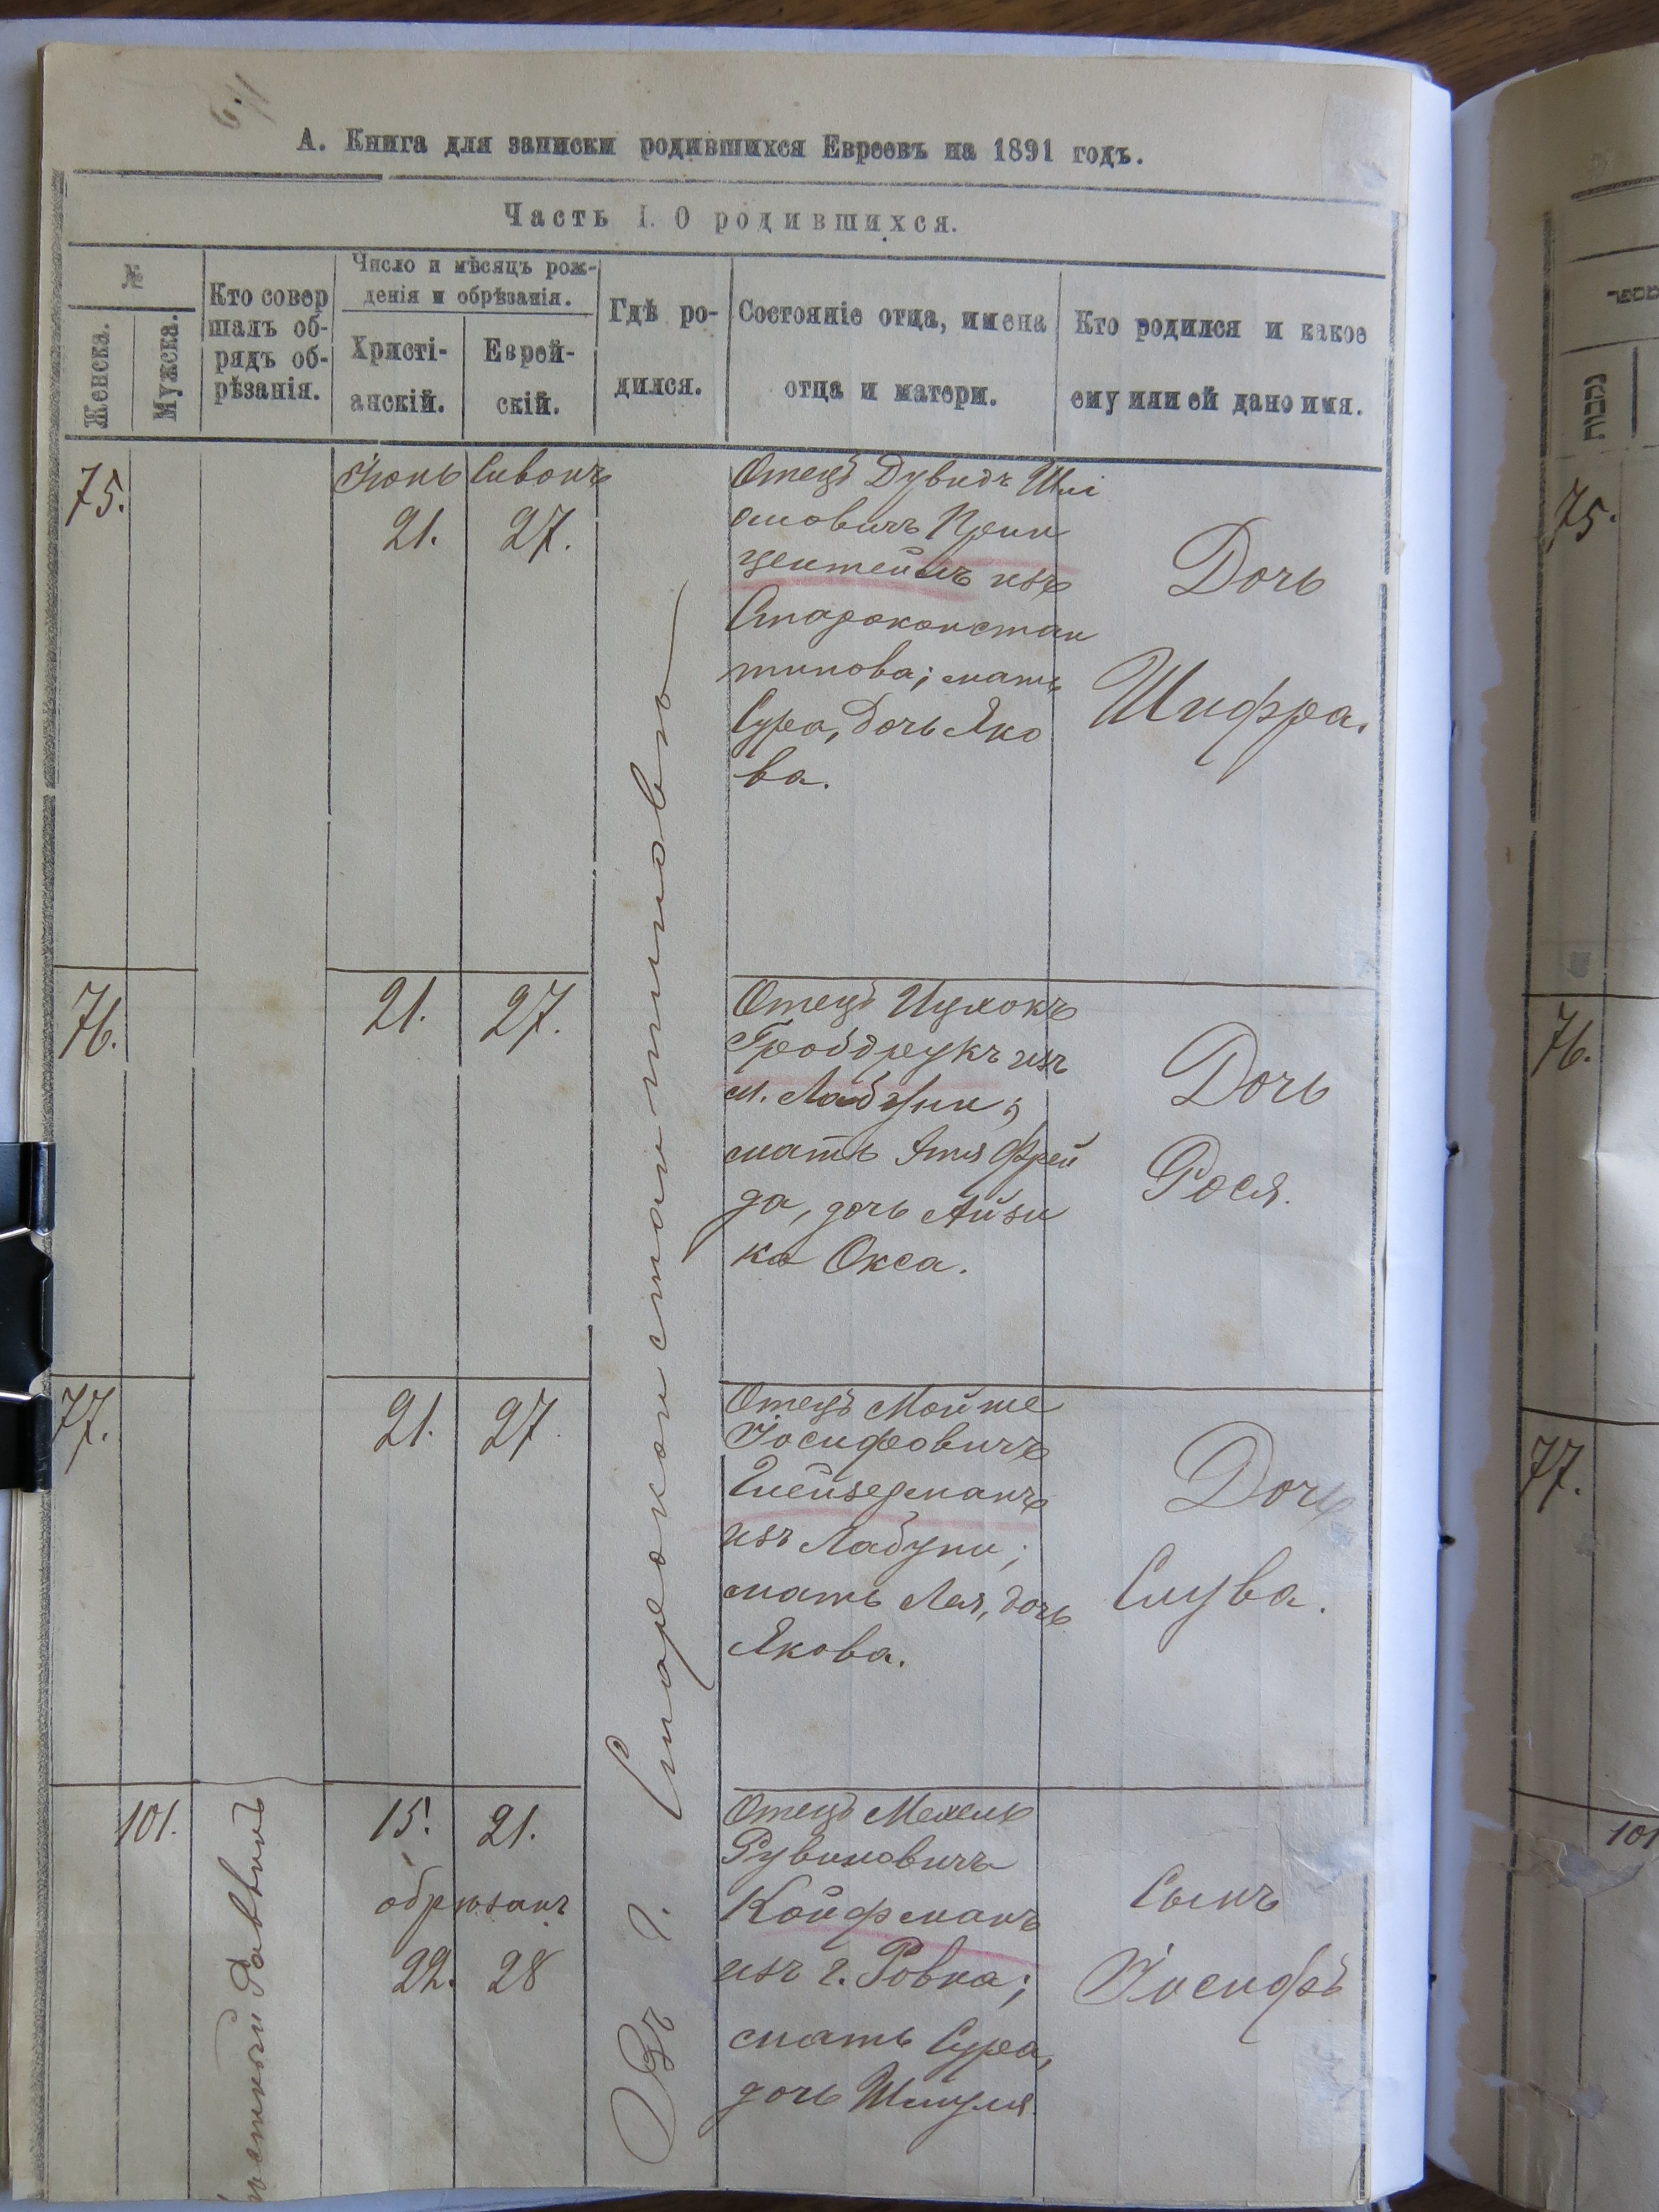 А. Книга для записки родившихся Евреевъ на 1891 годъ.
Часть I. О родившихся.
№
Женска.
Мужска.
Кто совер
шалъ об-
рядъ об-
рѣзанія.
Число и мѣсяцъ рож-
денія и обрѣзанія.
Христі-
анскій.
Еврей-
скій.
Гдѣ ро-
дился.
Состояніе отца, имена
отца и матери.
Кто родился и какое
ему или ей дано имя.
75.
Іюнь Сивонъ
21. 27.
Отецъ Дувидъ Шлі
омовичъ Прин
центейнъ изъ
Староконстан
тинова; мать
Сура, дочь Яко
ва.
Дочь
Шифра.
76.
21. 27.
Отецъ Ицхокъ
Гробдрукъ изъ
м. Лабунь;
мать Этя Фрей
да, дочь Айзи
ка Окса.
Дочь
Рося.
77.
21. 27.
Отецъ Мойше
Іосифовичъ
Глейзерманъ
изъ Лабуни;
мать Лея, дочь
Якова.
Дочь
Слува.
101.
Равинъ
15. 21.
обрѣзанъ
22. 28
Въ г. Староконстантиновѣ
Отецъ Мехель
Рувиновичъ
Койфманъ
изъ г. Ровна;
мать Сура,
дочь Шмуля
Сынъ
Іосифъ
נקבות
75.
76.
77.
101